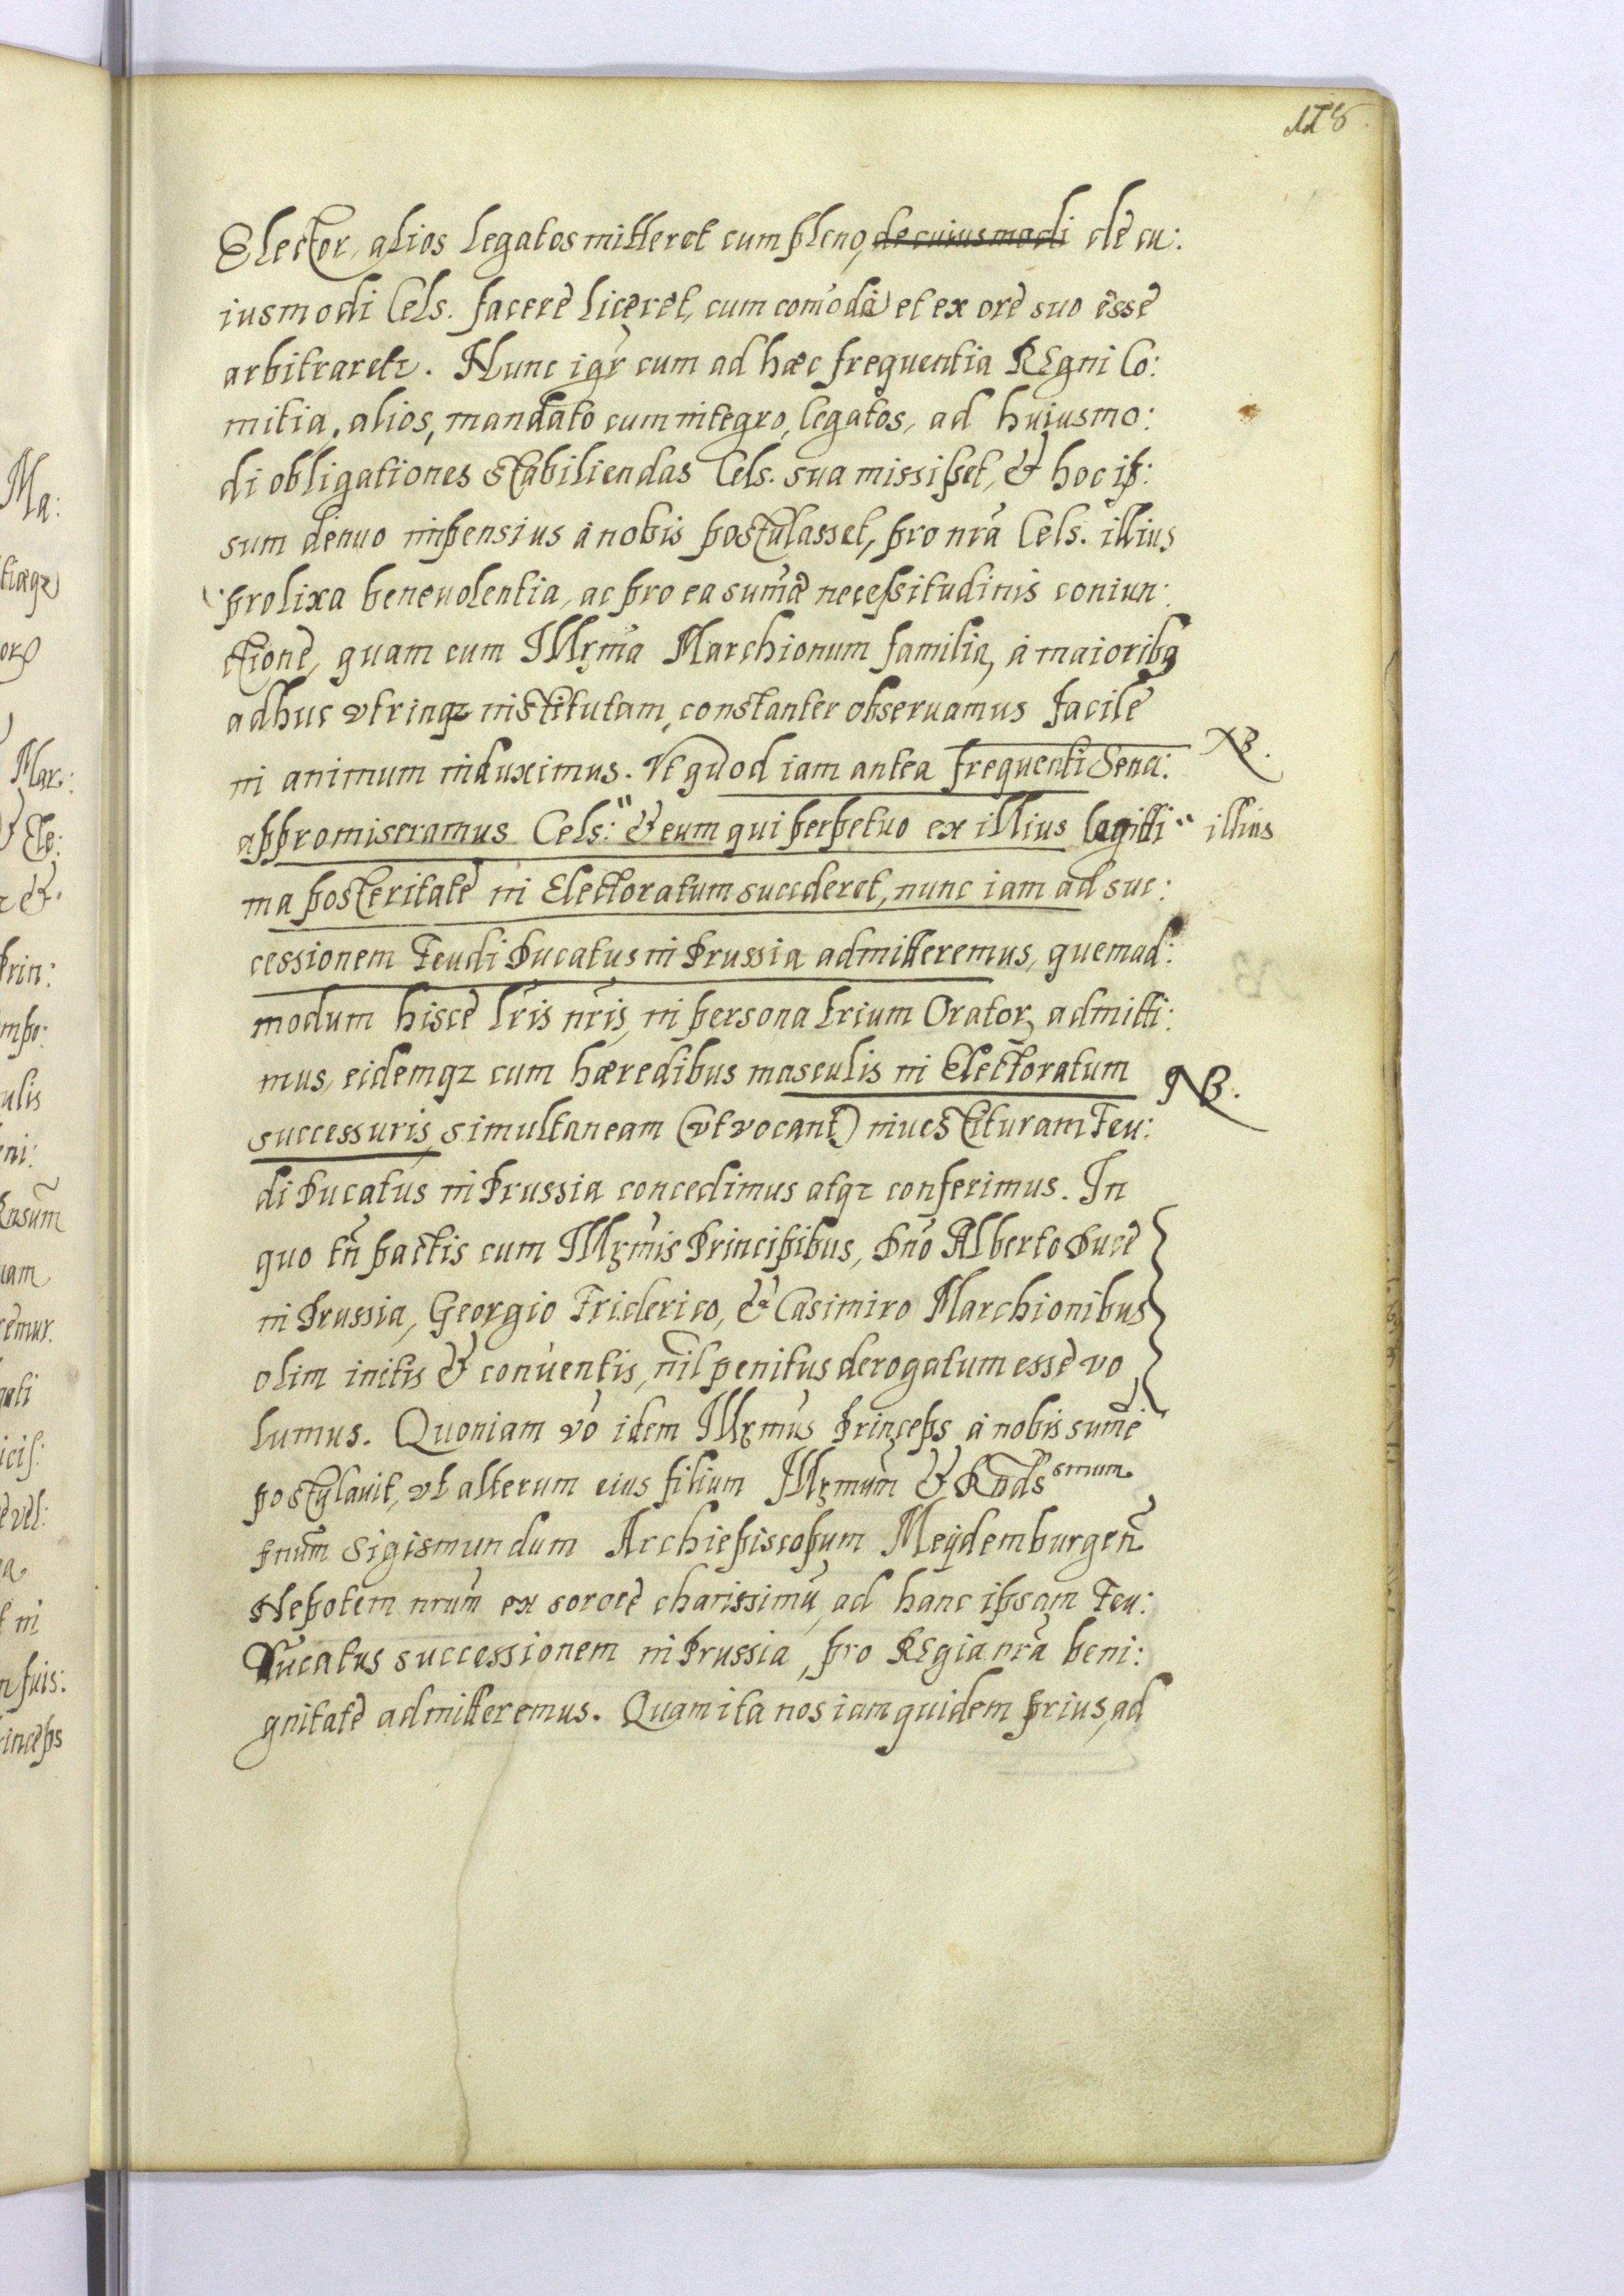 118
Elector, alios legatos mitteret cum pleno, de cuiusmodi de cu:
iusmodi Cels. facere liceret, cum comodũ et ex ore suo esse
arbitraretr. Nunc igr̃ cum ad hæc frequentia REgni Co:
mitia, alios, mandato cum integro, legatos, ad huiusmo:
di obligationes stabiliendas Cels. sua misisset, & hoc ip:
sum denuo impensius à nobis postulasset, pro nrã Cels. illius
prolixa beneuolentia, ac pro ea sum̃a necessitudinis coniun:
ctione, quam cum Illr̃ma Marchionum familia, à maioribq
adhuc vtrinqz institutam, constanter obseruamus facile
in animum induximus. Vt quod iam antea frequenti Sena: NB.
appromiseramus Cels: " & eum qui perpetuo ex illius legitti " illius
ma posteritate in Electoratum succderet, nunc iam ad suc:
cessionem Feudi Ducatus in Prussia admitteremus, quemad:
modum hisce lr̃is nr̃is, in persona trium Orator, admitti:
mus, eidemqz cum hæredibus masculis in Electoratum NB.
successuris, simultaneam (vt vocant) inuestituram Feu:
di Ducatus in Prussia concedimus atqz conferimus. In
quo tñ pactis cum Illr̃mis Principibus, Dño Alberto Duce
in Prussia, Georgio Friderico, & Casimiro Marchionibus
olim initis & conuentis, nil penitus derogatum esse vo
lumus. Quoniam vo idem Illr̃mus Princeps à nobis sum̃e
postulauit, vt alterum eius filium Illr̃mum & Rñdssmum
Dnum̃ Sigismundum Archiepiscopum Meÿdemburgeñ
Nepotem nrum̃ ex sorore charissimũ, ad hanc ipsam Feu:
Ducatus successionem in Prussia, pro REgia nrã beni:
gnitate admitteremus. Quam ita nos iam quidem prius, ad